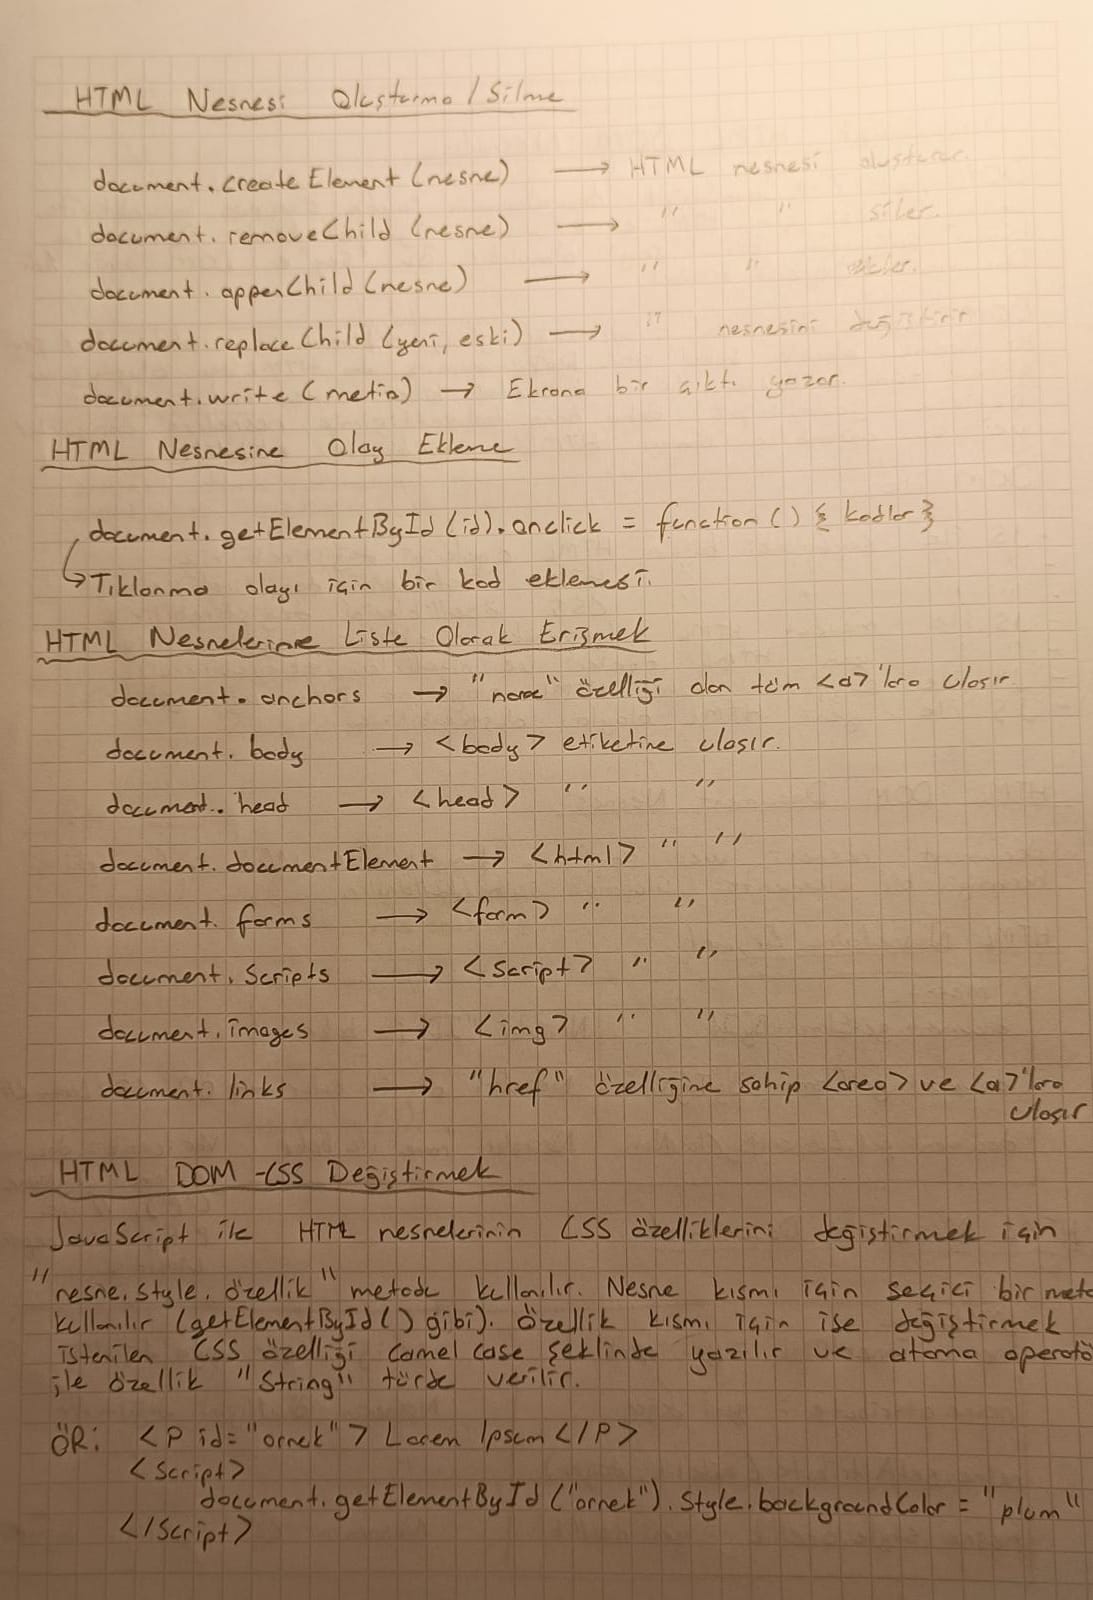 HTML Nesnesi Oluşturma / Silme
document.createElement (nesne) → HTML nesnesi oluşturur.
document.removeChild (nesne) → " " siler.
document.appenChild (nesne) → " " ekler.
document.replaceChild (yeni, eski) → " nesnesini değiştirir
document.write (metin) → Ekrana bir çıktı yazar.
HTML Nesnesine Olay Ekleme
document.getElementById (id).onclick = function () { kodlar }
↳ Tıklanma olayı için bir kod eklemesi.
HTML Nesnelerine Liste Olarak Erişmek
document.anchors → "name" özelliği olan tüm <a>'lara ulaşır
document.body → <body> etiketine ulaşır.
document.head → <head> " "
document.documentElement → <html> " "
document.forms → <form> " "
document.Scripts → <Script> " "
document.images → <img> " "
document.links → "href" özelliğine sahip <area> ve <a>'lara
ulaşır
HTML DOM - CSS Değiştirmek
JavaScript ile HTML nesnelerinin CSS özelliklerini değiştirmek için
"nesne.style.özellik" metodu kullanılır. Nesne kısmı için seçici bir meto
kullanılır (getElementById () gibi). Özellik kısmı için ise değiştirmek
istenilen CSS özelliği camel case şeklinde yazılır ve atama operatö
ile özellik "String" türde verilir.
ÖR: <P id="ornek"> Lorem Ipsum </P>
<Script>
document.getElementById ("ornek").Style.backgroundColor = "plum"
</Script>